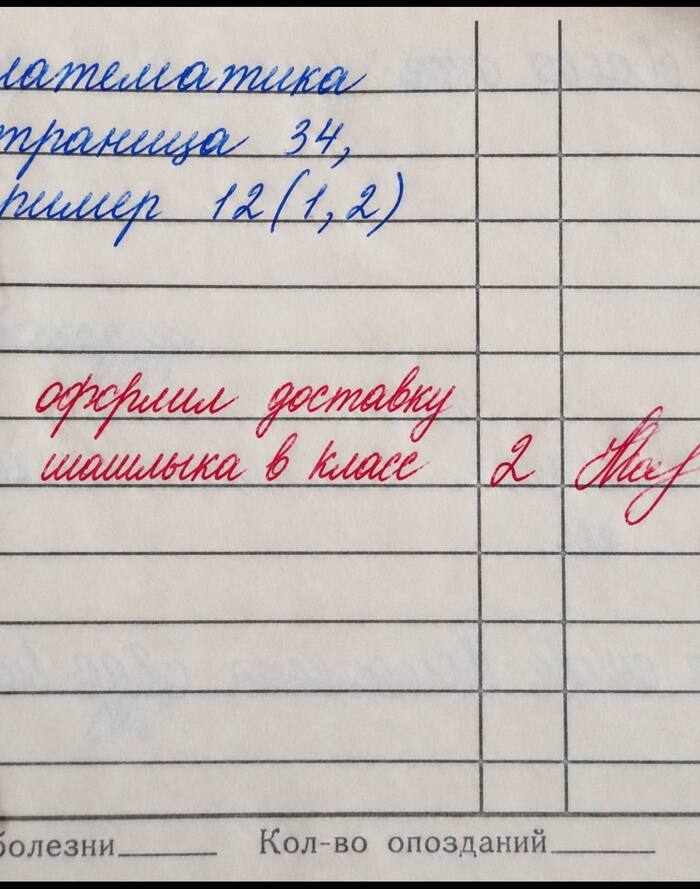 математика
страница 34,
пример 12(1,2)
оформил доставку
шашлыка в класс 2
болезни Кол-во опозданий